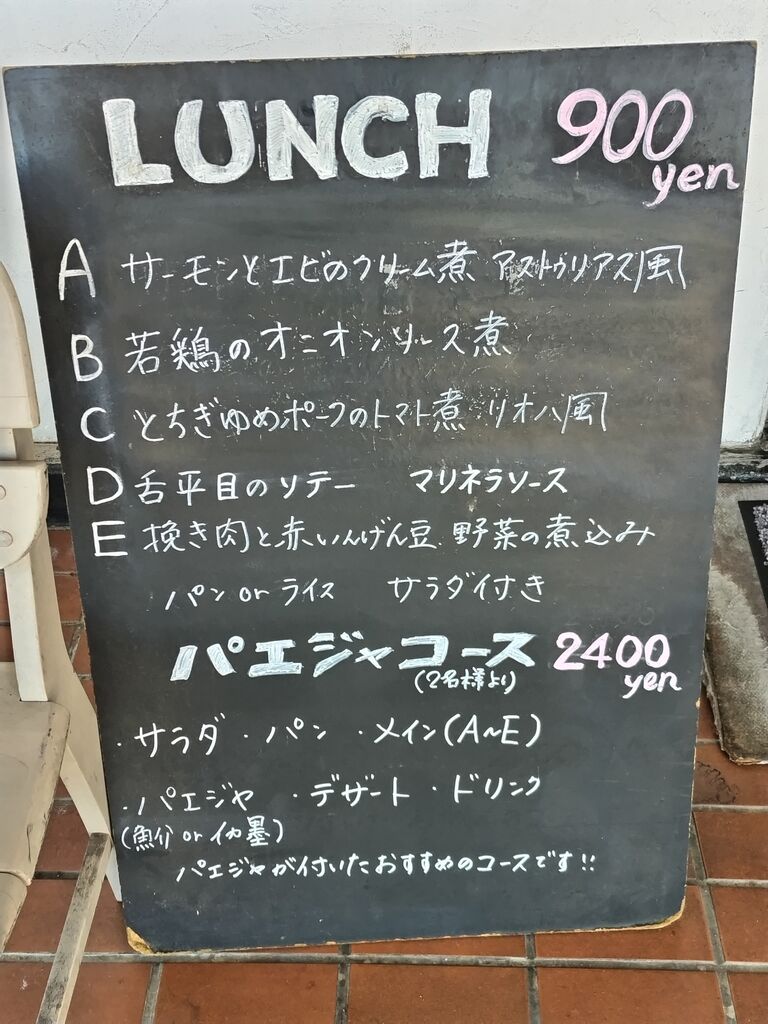 LUNCH 900 yen
A サーモンとエビのクリーム煮 アストゥリアス風
B 若鶏のオニオンソース煮
C とちぎゆめポークのトマト煮 リオハ風
D 舌平目のソテー マリネラソース
E 挽き肉と赤いんげん豆 野菜の煮込み
パン or ライス サラダ付き
パエジャコース 2400 yen
(2名様より)
・サラダ ・パン ・メイン(A~E)
・パエジャ ・デザート ・ドリンク
(魚介 or イカ墨)
パエジャが付いたおすすめのコースです!!